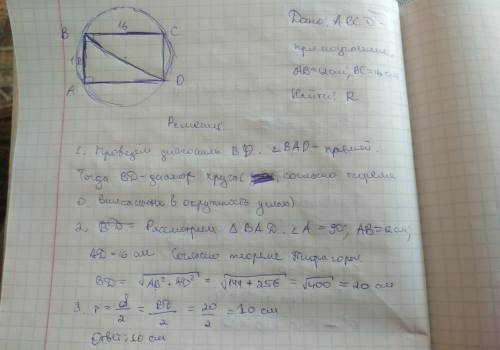 16
B C
12
A D
Дано: ABCD -
прямоугольник,
AB=12см, BC=16см
Найти: R
Решение:
1. Проведем диагональ BD. ∠BAD - прямой.
Тогда BD - диаметр круга ( согласно теореме
о вписанных в окружность углах)
2. BD = Рассмотрим △ BAD. ∠A = 90°, AB=12см,
AD=16 см Согласно теореме Пифагора
BD = √AB²+AD² = √144+256 = √400 = 20 см
3. r = d/2 = BD/2 = 20/2 = 10 см
Ответ: 10 см